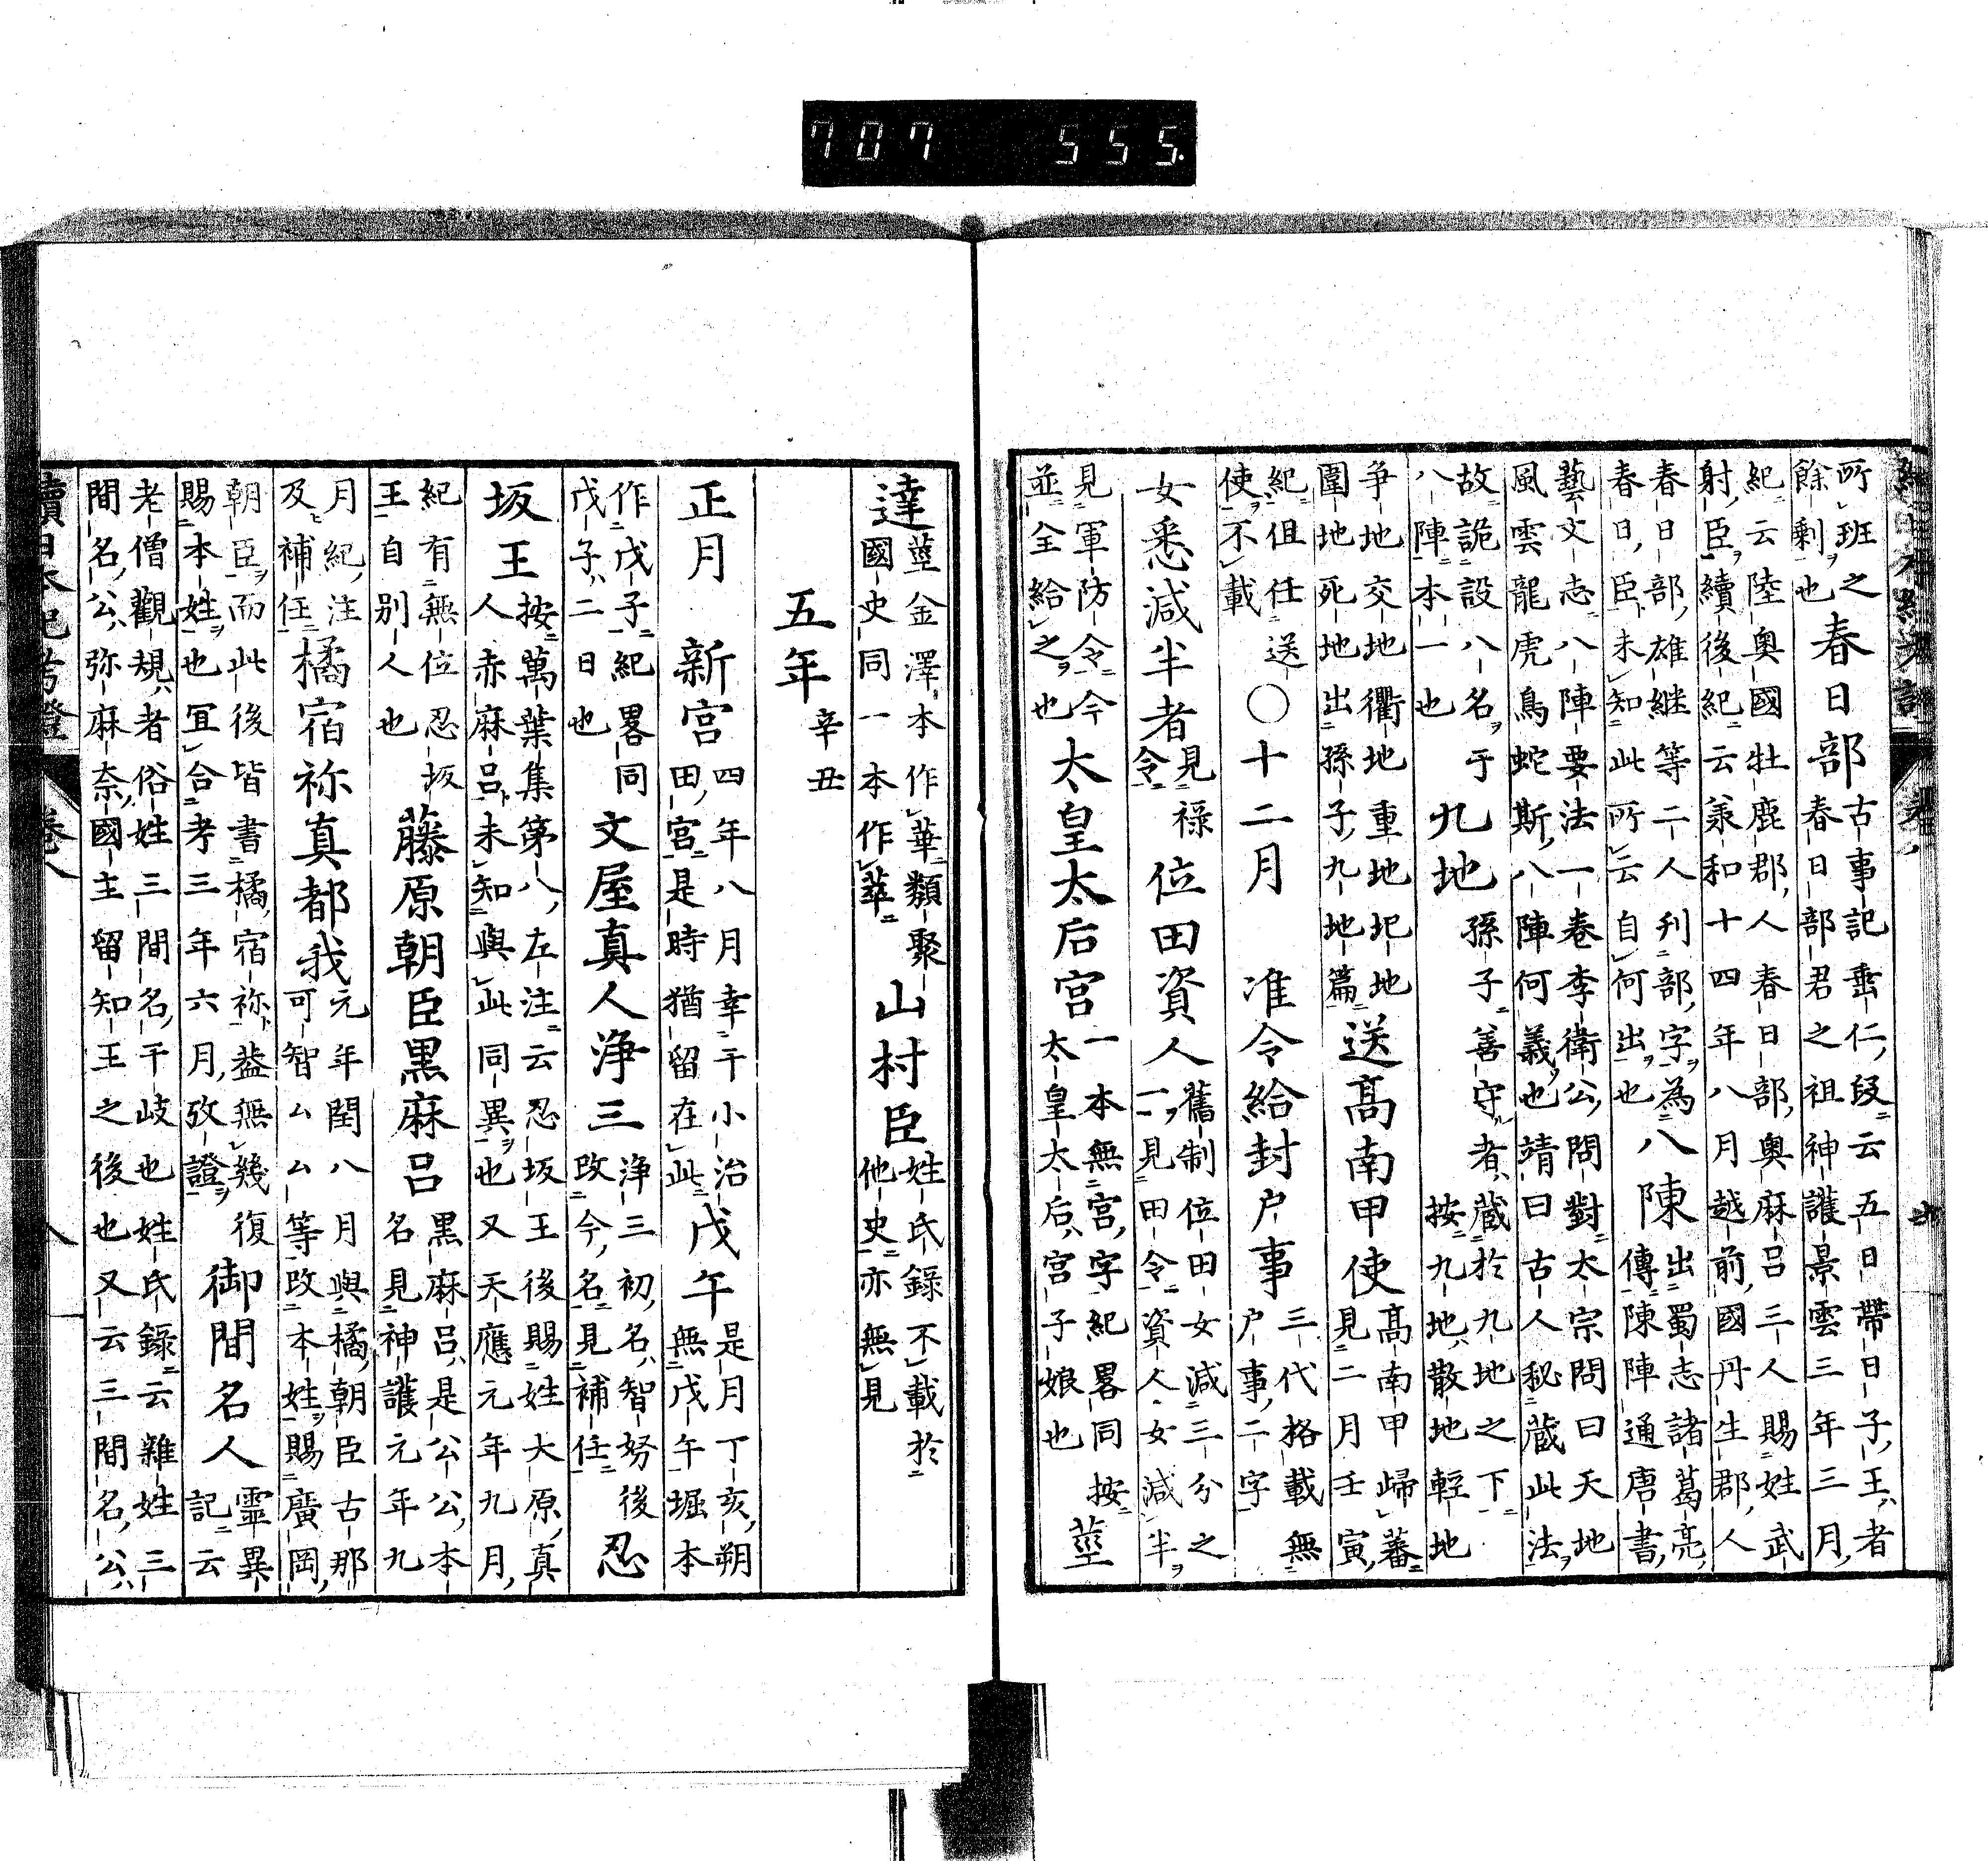 707 555.
所班之
餘剰也
春日部
古事記垂仁段云五日帶日子王者
春日部君之祖神護景雲三年三月
紀云陸奥國牡鹿郡人春日部奥麻呂三人賜姓武
射臣續後紀云承和十四年八月越前國丹生郡人
春日部雄継等二人刋部字為
春日臣未知此所云自何出也
八陳
出蜀志諸葛亮
傳陳陣通唐書
藝文志八陣要法一卷李衛公問對太宗問曰天地
風雲龍虎鳥蛇斯八陣何義也靖曰古人秘蔵此法
故詭設八名于
八陣本一也
九地
孫子善守者蔵於九地之下
按九地散地輕地
争地交地衢地重地圮地
圍地死地地出孫子九地篇
送髙南甲使
髙南甲歸蕃
見二月壬寅
紀但任送
使不載
〇十二月
准令給封户事
三代格載無
户事二字
女悉減半者
見禄
令
位田資人
舊制位田女減三分之
一見田令資人女減半
見軍防令今
並全給之也
太皇太后宮
一本無宮字紀畧同按
太皇太后宮子娘也
莖
達
莖金澤本作華類聚
國史同一本作華
山村臣
姓氏録不載於
他史亦無見
五年
辛丑
正月
新宮
四年八月幸于小治
田宮是時猶留在此
戊午
是月丁亥朔
無戊午堀本
作戊子紀畧同
戊子二日也
文屋真人浄三
浄三初名智努後
改今名見補任
忍
坂王
按萬葉集第八左注云忍坂王後賜姓大原真
人赤麻呂未知與此同異也又天應元年九月
紀有無位忍坂
王自别人也
藤原朝臣黒麻呂
黒麻呂是公公本
名見神護元年九
月紀注
及補任
橘宿祢真都我
元年閏八月與橘朝臣古那
可智ムム等改本姓賜廣岡
朝臣而此後皆書橘宿祢盖無幾復
賜本姓也冝合考三年六月攷證
御間名人
靈異
記云
老僧觀規者俗姓三間名干岐也姓氏録云雜姓三
間名公弥麻奈國主留知王之後也又云三間名公
續日本紀考證
卷八
八